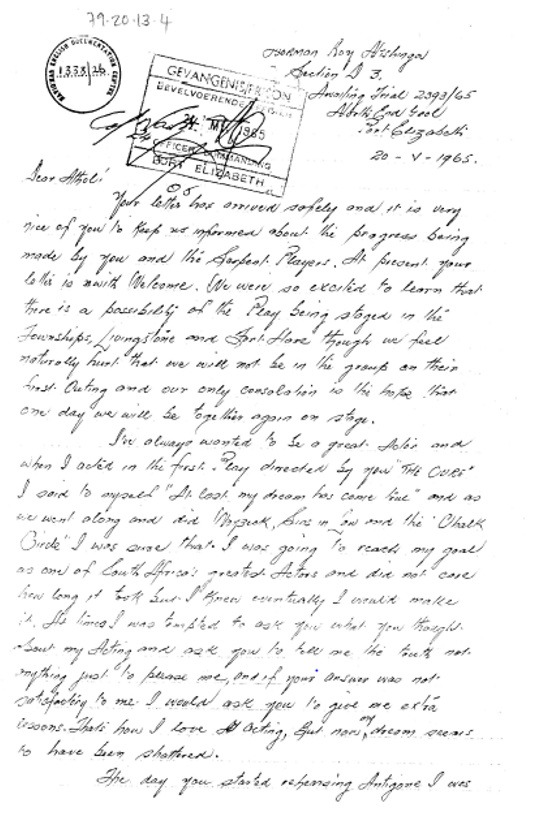 79·20·13·4
NATIONAL ENGLISH DOCUMENTATION CENTRE
1333/26
Norman Roy
Section D 3.
Awaiting Trial 2393/65
North End Gaol
Port Elizabeth
20 - V - 1965.
GEVANGENIS
BEVELVOERENDE
1965
OFFICER COMMANDING
PORT ELIZABETH
Dear Athol!
Your letter has arrived safely and it is very
nice of you to keep us informed about the progress being
made by you and the Serpent Players. At present your
letter is with Welcome. We were so excited to learn that
there is a possibility of the Play being staged in the
Townships, Livingstone and Fort Hare though we feel
naturally hurt that we will not be in the group on their
first Outing and our only consolation is the hope that
one day we will be together again on stage.
I've always wanted to be a great Actor and
when I acted in the first Play directed by you "THE CURE"
I said to myself "At last my dream has come true" and as
we went along and did and the "Chalk
Circle" I was sure that I was going to reach my goal
as one of South Africa's greatest Actors and did not care
how long it took but I knew eventually I would make
it. At times I was tempted to ask you what you thought
about my Acting and ask you to tell me the truth not
anything just to please me, and if your answer was not
satisfactory to me I would ask you to give me extra
lessons. That's how I love Acting, But now my dream seems
to have been shattered.
The day you started rehersing Antigone I was